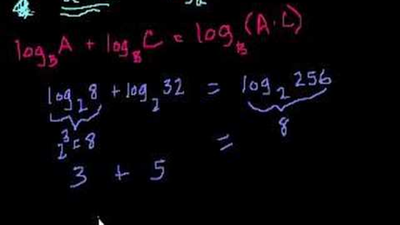 log_B A + log_B C = log_B (A·C)
log_2 8 + log_2 32 = log_2 256
2^3 = 8
8
3 + 5 =